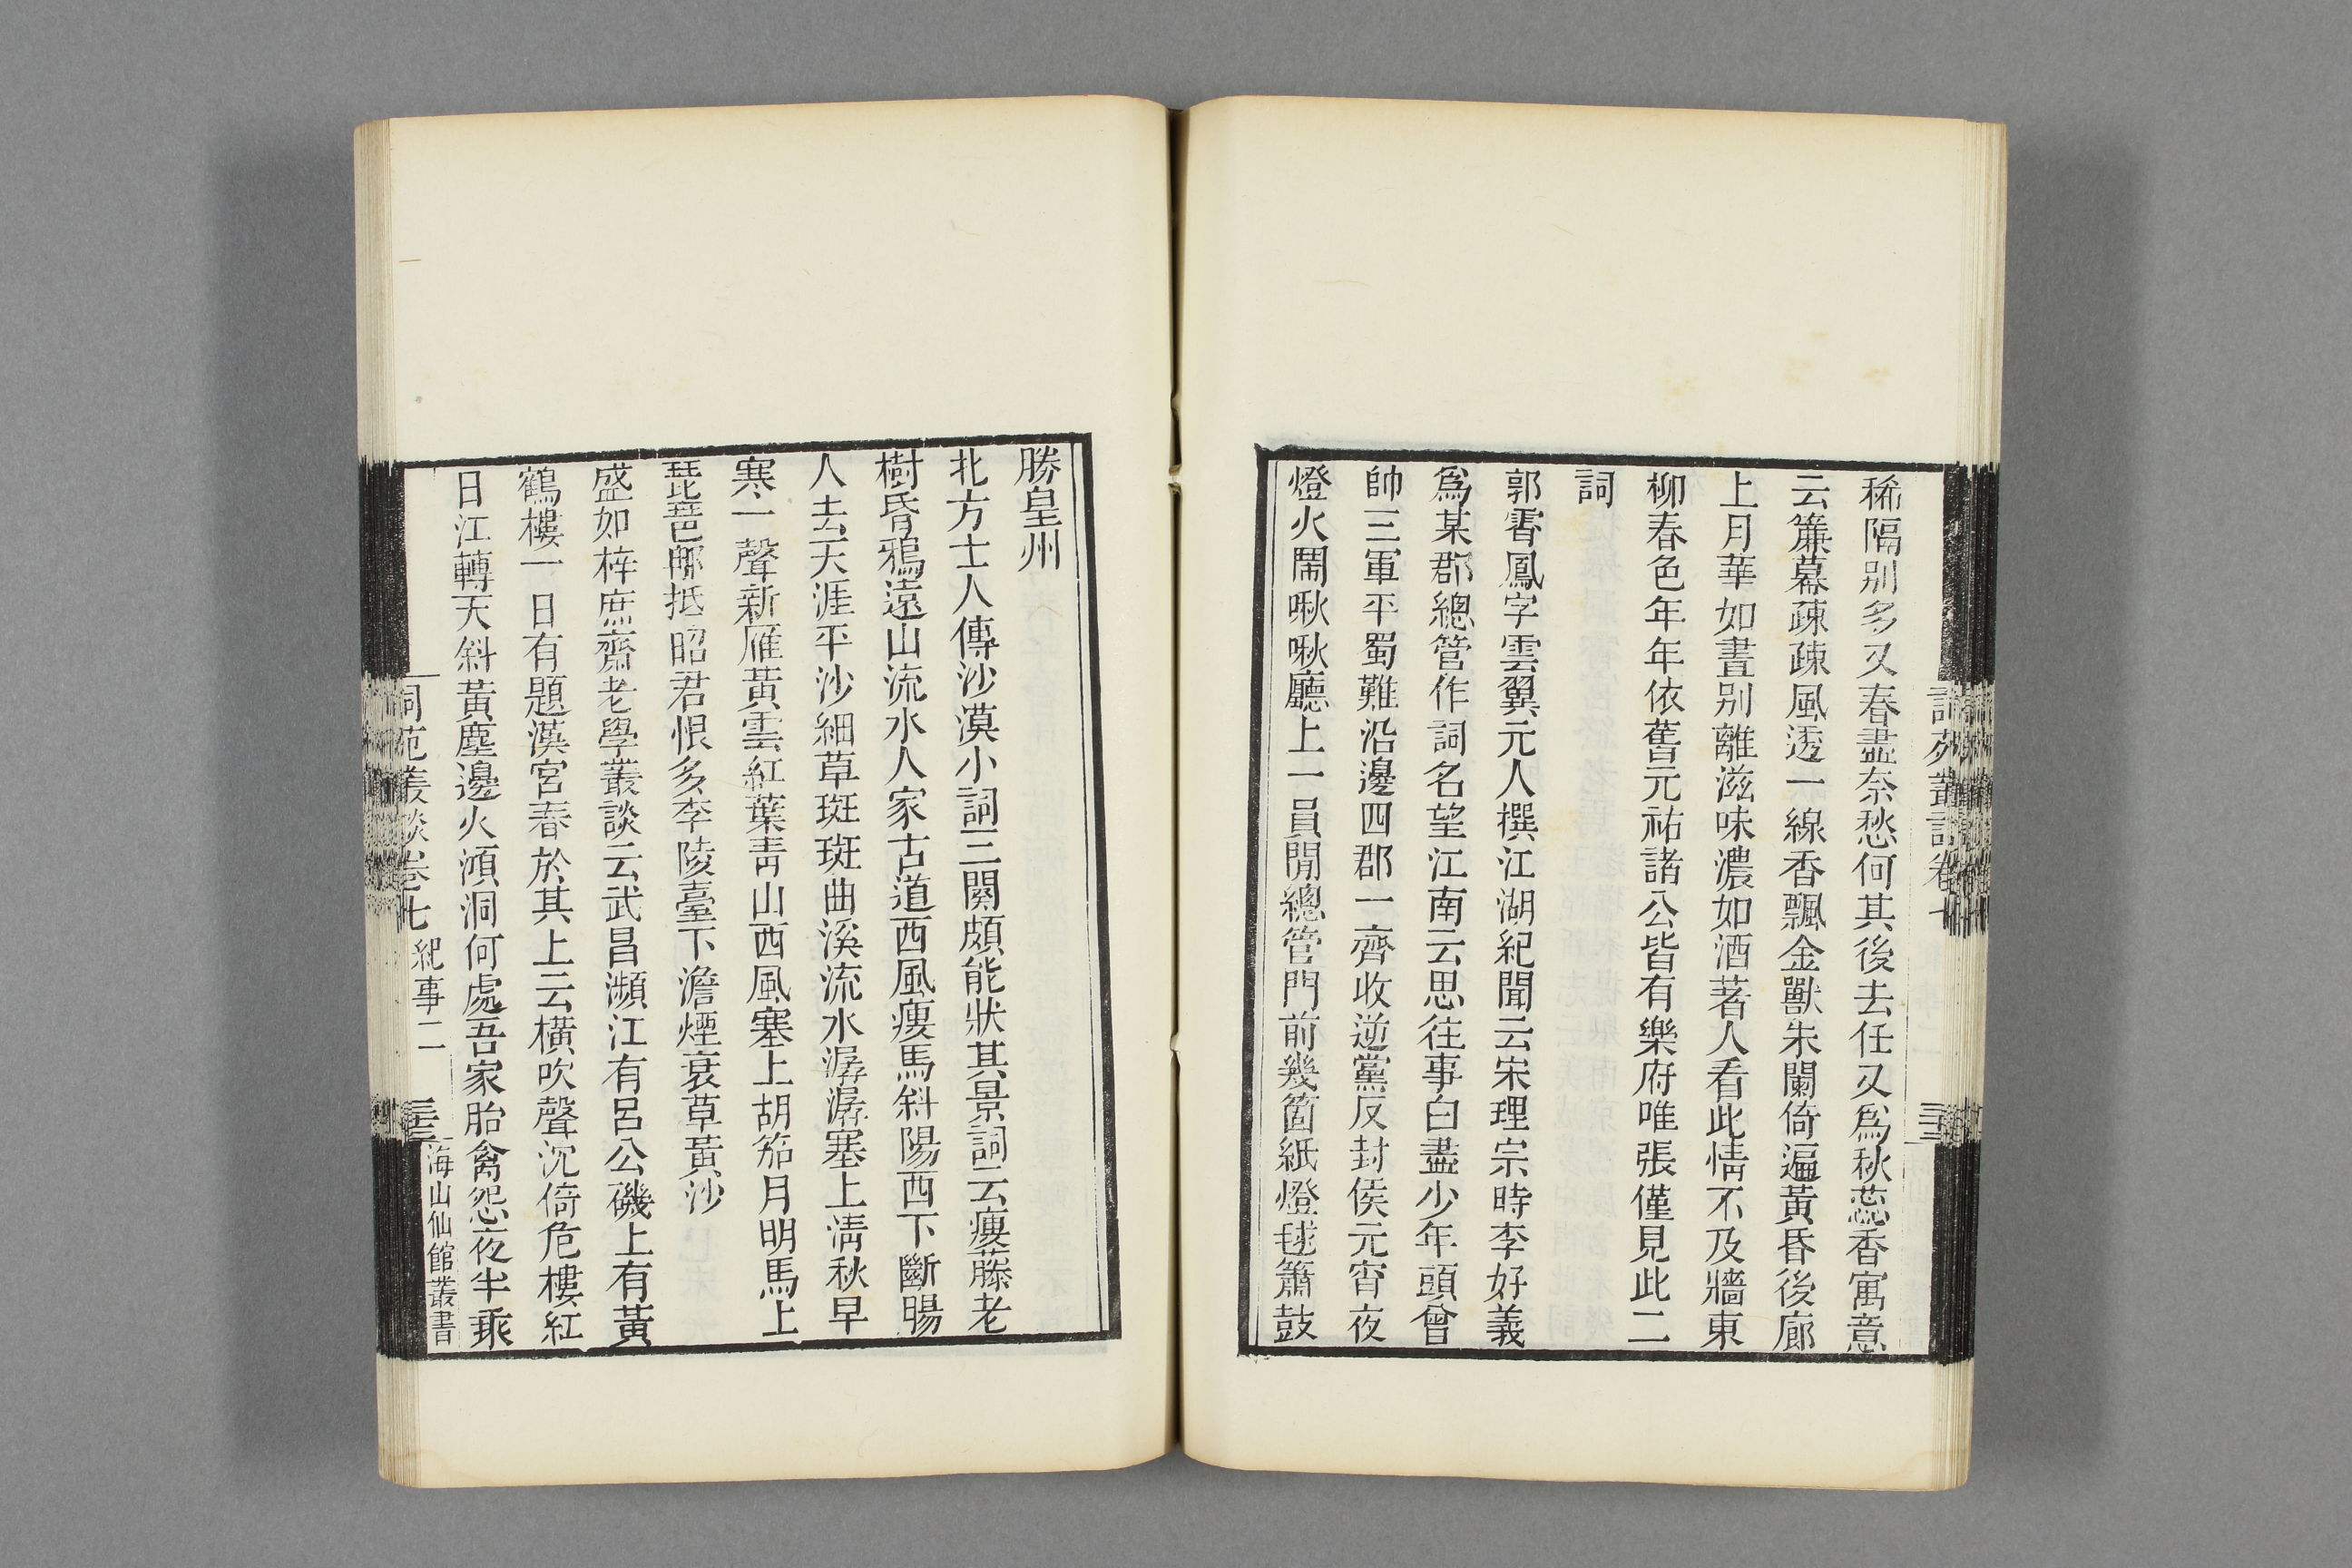 稀隔别多又春盡奈愁何其後去任又爲秋蕊香寓意
云簾幕疎疎風透一線香飄金獸朱闌倚遍黃昏後廊
上月華如晝别離滋味濃如酒著人看此情不及牆東
柳春色年年依舊元祐諸公皆有樂府唯張僅見此二
詞
郭霄鳳字雲翼元人撰江湖紀聞云宋理宗時李好義
爲某郡總管作詞名望江南云思往事白盡少年頭曾
帥三軍平蜀難沿邊四郡一齊收逆黨反封侯元宵夜
燈火鬧啾啾廳上一員閒總管門前幾箇紙燈毬簫鼓
勝皇州
北方士人傳沙漠小詞三闋頗能狀其景詞云瘦藤老
樹昏鴉遠山流水人家古道西風瘦馬斜陽西下斷腸
人去天涯平沙細草斑斑曲溪流水潺潺塞上淸秋早
寒一聲新雁黃雲紅葉靑山西風塞上胡笳月明馬上
琵琶那抵昭君恨多李陵臺下澹煙衰草黃沙
盛如梓庶齋老學叢談云武昌瀕江有呂公磯上有黃
鶴樓一日有題漢宮春於其上云橫吹聲沉倚危樓紅
日江轉天斜黃塵邊火澒洞何處吾家胎禽怨夜半乘
詞苑叢談卷七 紀事二 三三 海山仙館叢書